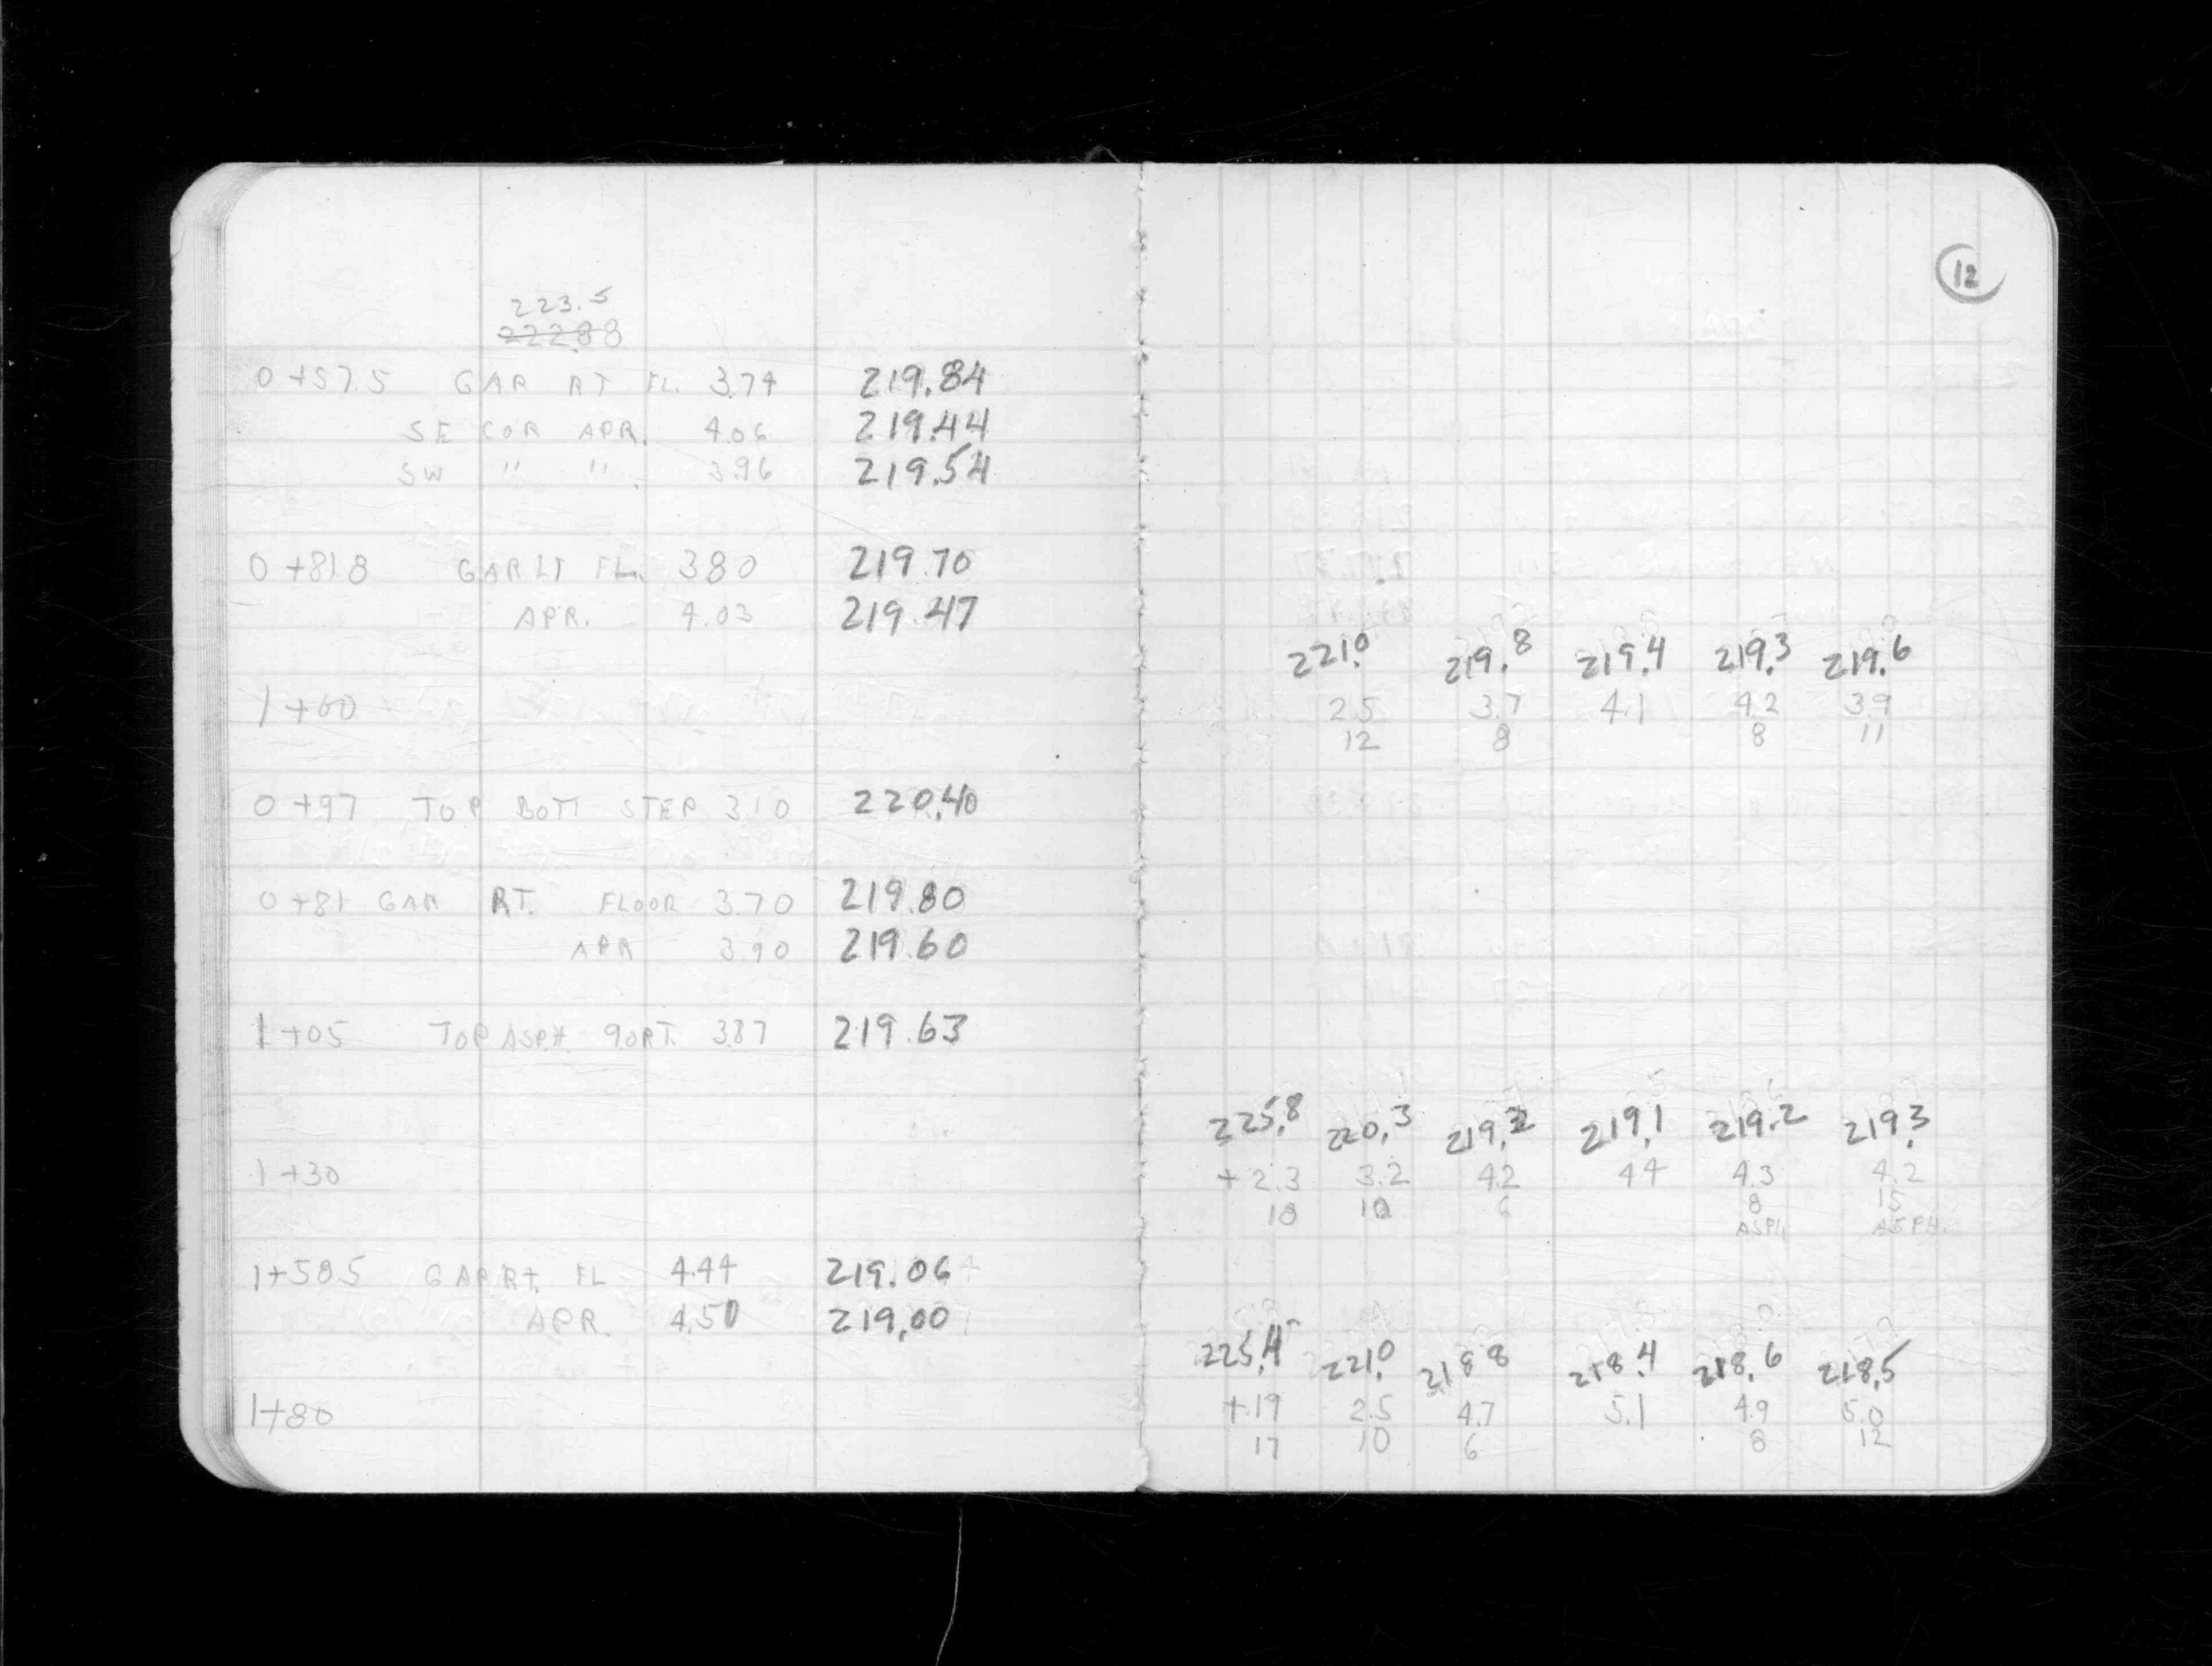 223.5
222.88
0+57.5 GAR RT FL. 3.74 219.84
SE COR APR. 4.06 219.44
SW " " 3.96 219.54
0+81.8 GAR LT FL. 3.80 219.70
APR. 4.03 219.47
1+00
0+97 TOP BOTT STEP 3.10 220.40
0+81 GAR RT. FLOOR 3.70 219.80
APR 3.90 219.60
1+05 TOP ASPH. 9.0 RT. 3.87 219.63
1+30
1+58.5 GAR RT. FL 4.44 219.06
APR. 4.50 219.00
1+80
12
221.0 219.8 219.4 219.3 219.6
2.5 3.7 4.1 4.2 3.9
12 8 8 11
225.8 220.3 219.2 219.1 219.2 219.3
+2.3 3.2 4.2 4.4 4.3 4.2
18 10 6 8 15
ASPH. ASPH.
225.4 221.0 218.8 218.4 218.6 218.5
+1.9 2.5 4.7 5.1 4.9 5.0
17 10 6 8 12